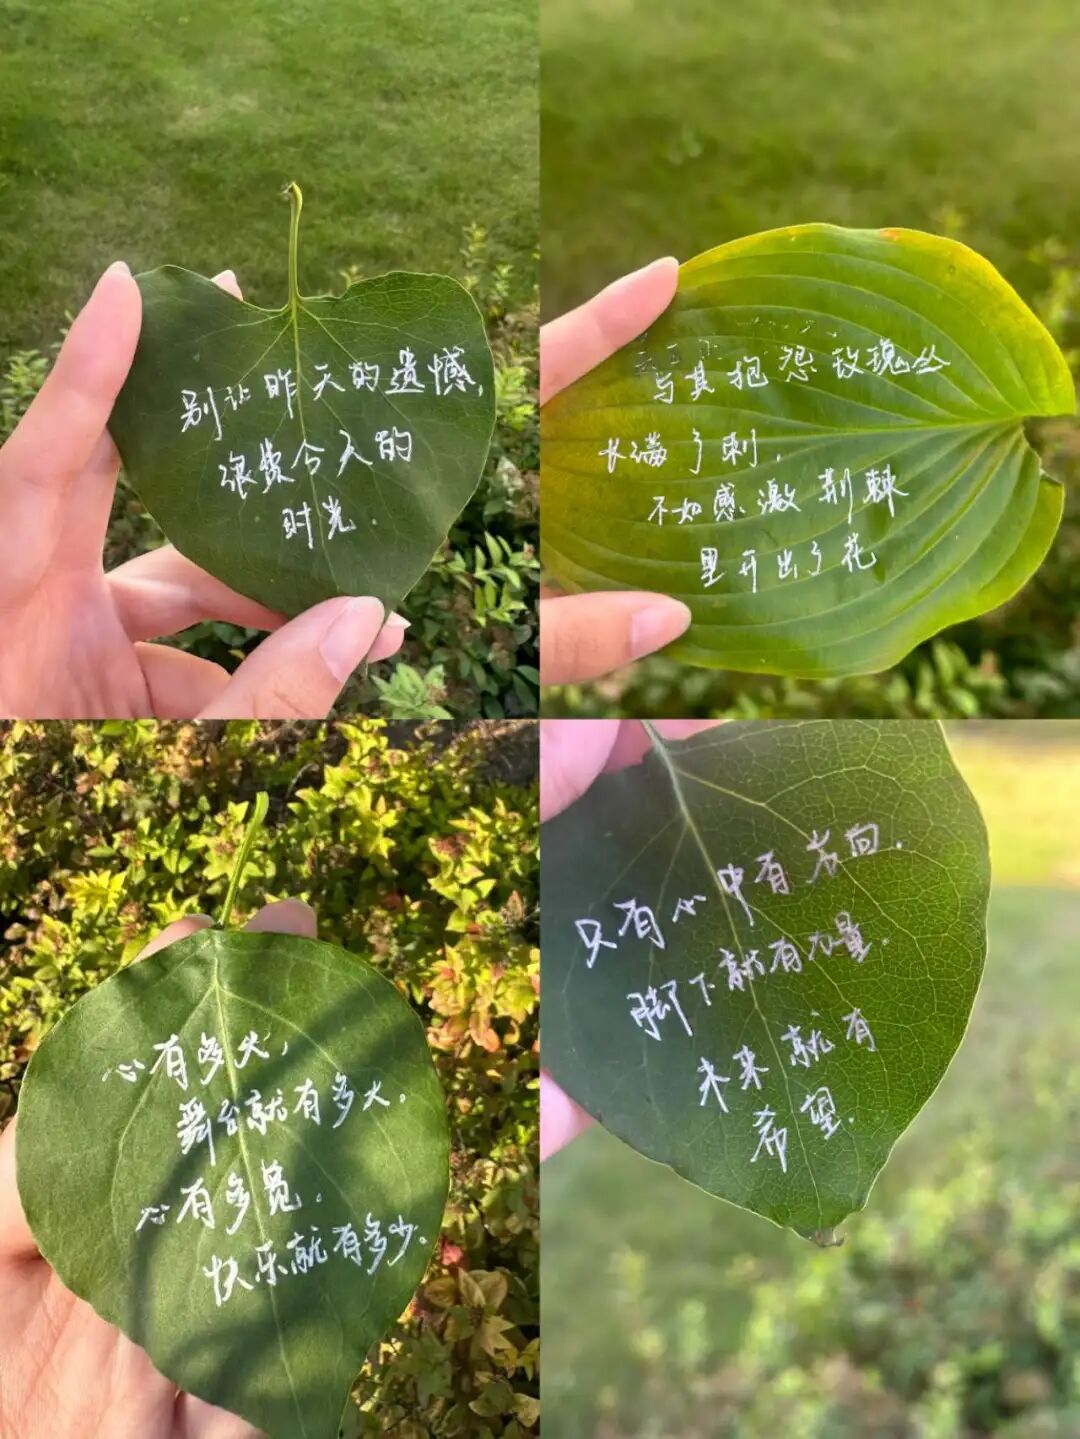 别让昨天的遗憾,
浪费今天的
时光.
与其抱怨玫瑰丛
长满了刺,
不如感激荆棘
里开出了花
心有多大,
舞台就有多大。
心有多宽,
快乐就有多少.
只有心中有方向.
脚下就有力量.
未来就有
希望.